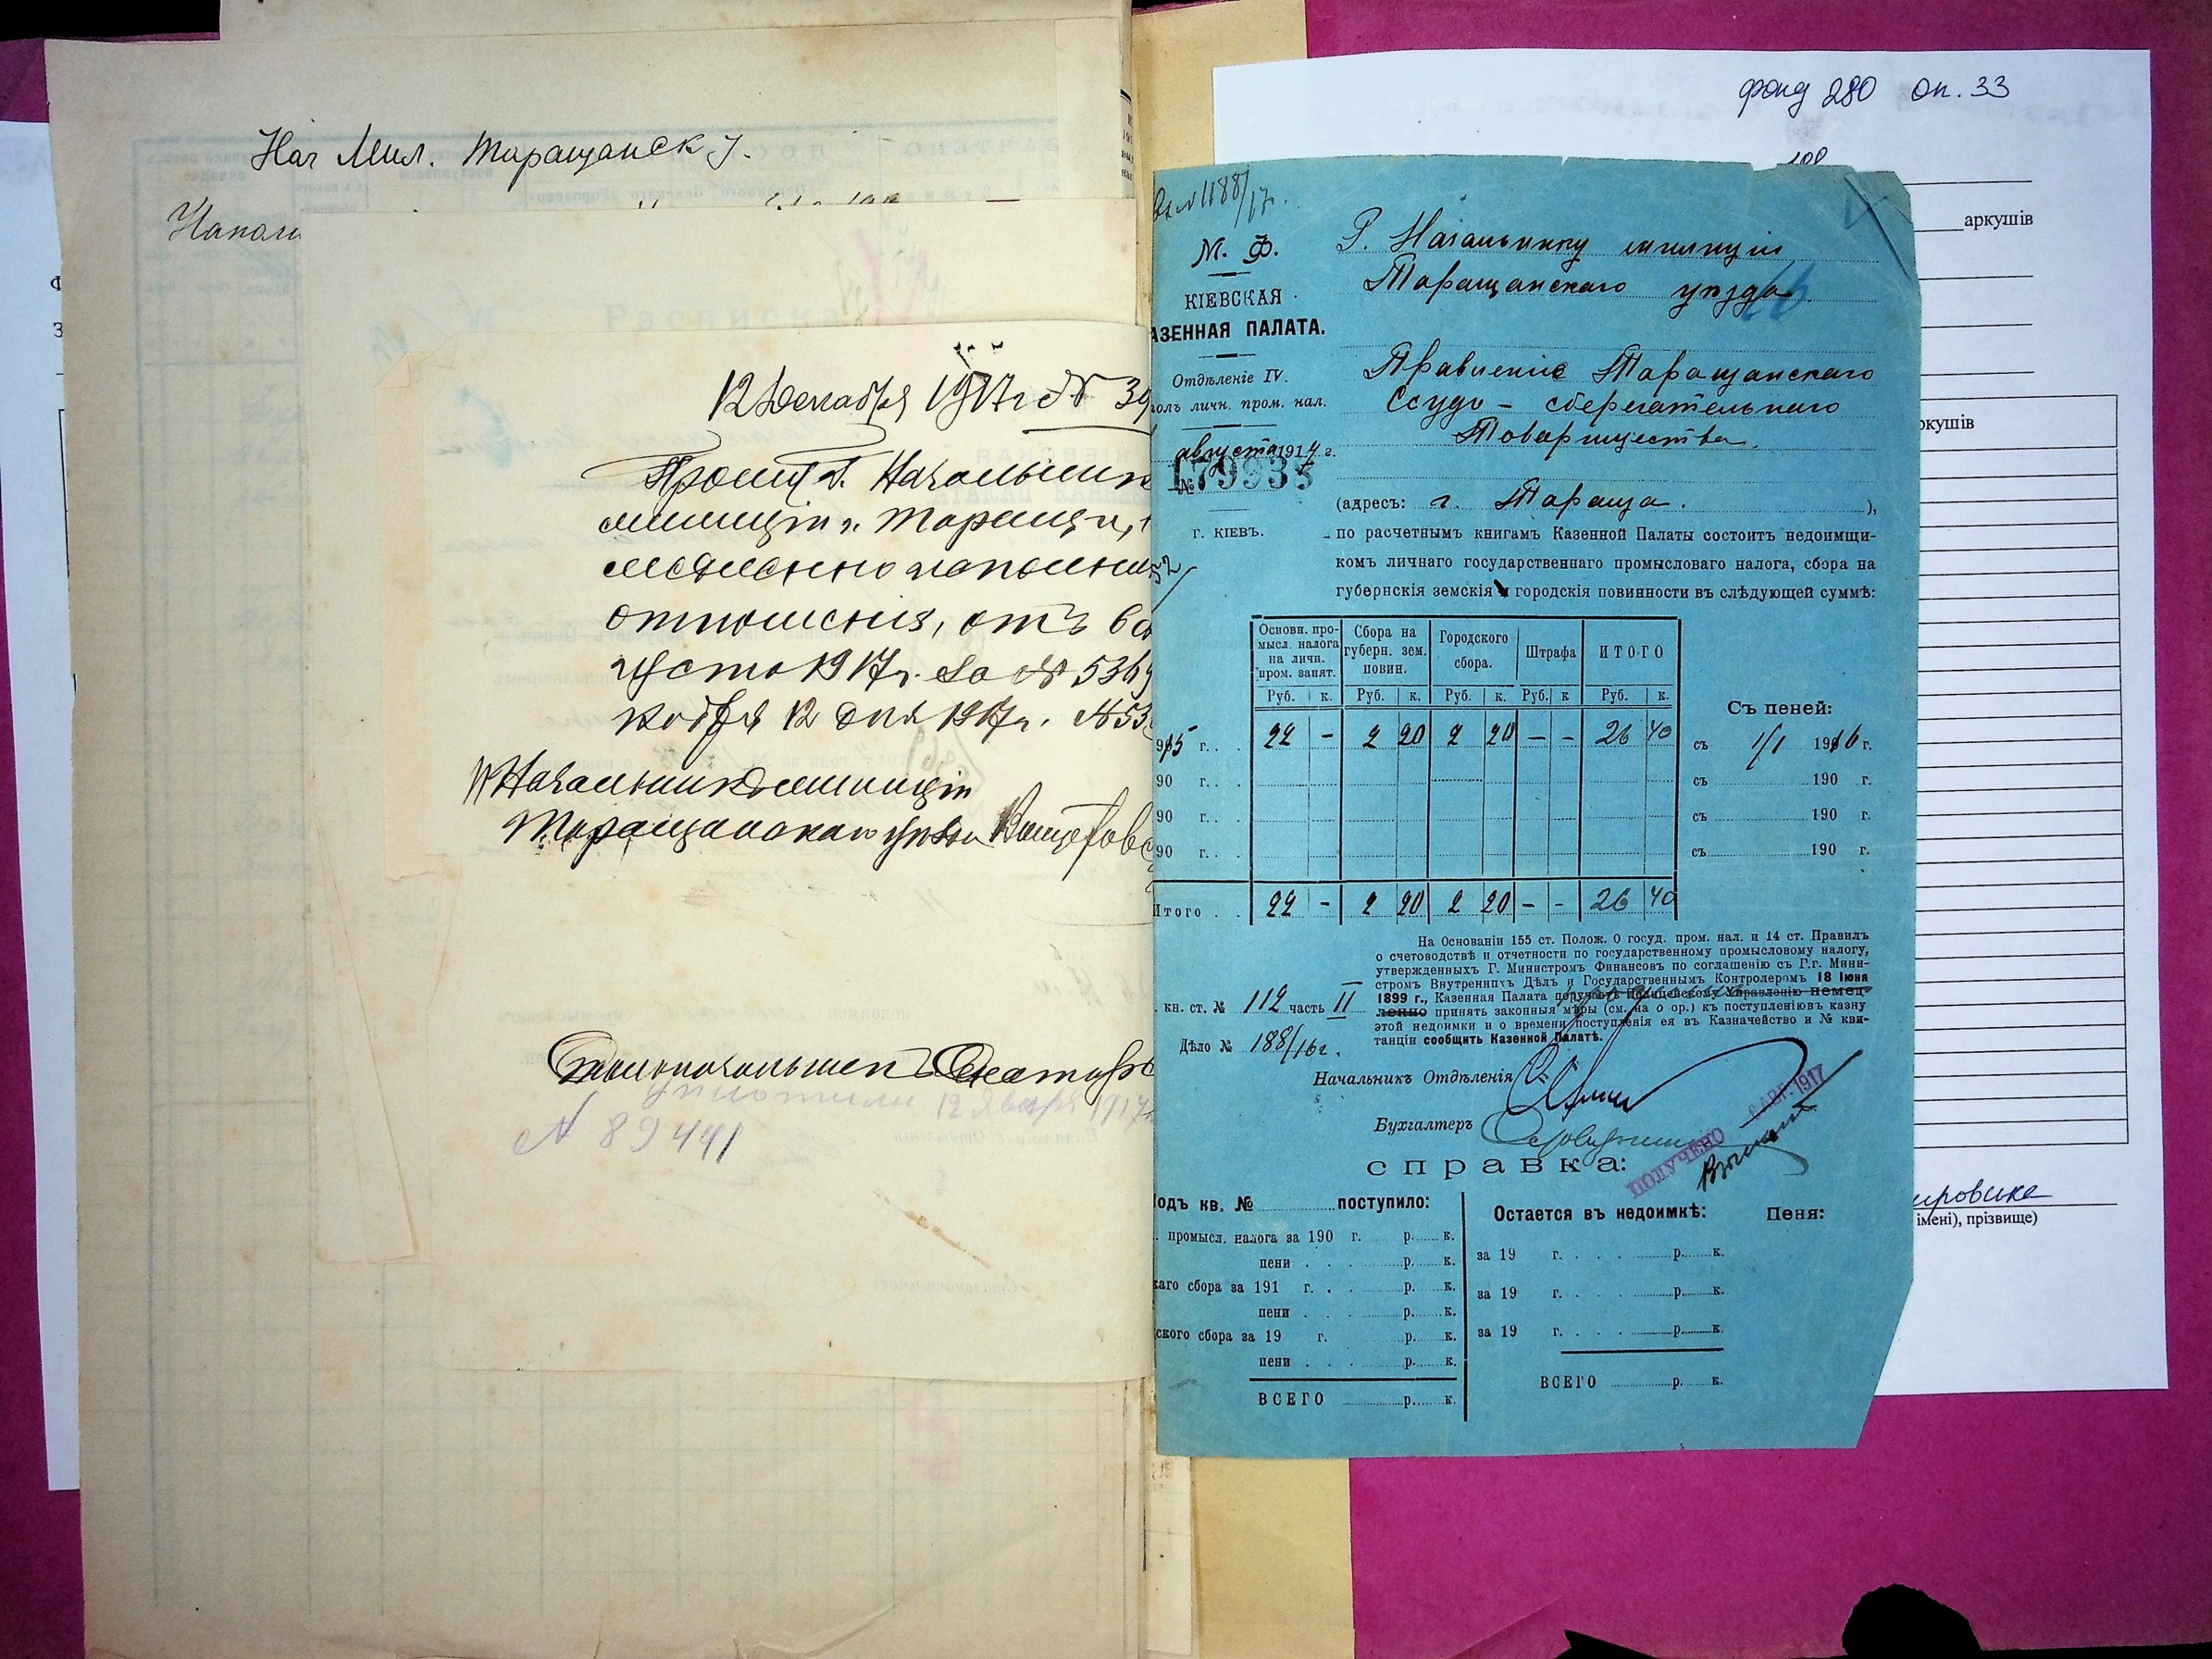 фонд 280 оп. 33
аркушів
аркушів
ировське
імені), прізвище)
Нач Мил. Таращанск у.
Наполн
Расписка
12 Декабря 1917 г № 39
Прошу Г. Начальник
милиціи г. Таращи,
медленно исполни
отношенія, отъ 6 ав
густа 1917 г. за № 5369
ября 12 дня 1917 г. № 53
Начальник милиціи
Таращанскаго уезда
Столоначальник
уплотили 12 Января 1917 г
№ 89441
188/17г.
М. Ф.
КІЕВСКАЯ
АЗЕННАЯ ПАЛАТА.
Отдѣленіе IV.
толъ личн. пром. нал.
августа 1917 г.
№ 179935
г. КІЕВЪ.
Г. Начальнику милиціи
Таращанскаго уѣзда
Правленіе Таращанскаго
Ссудо-сберегательнаго
Товарищества.
(адресъ: г. Тараща. ),
по расчетнымъ книгамъ Казенной Палаты состоитъ недоимщи-
комъ личнаго государственнаго промысловаго налога, сбора на
губернскія земскія и городскія повинности въ слѣдующей суммѣ:
Основн. про-мысл. налога на личн. пром. занят. Сбора на губерн. зем. повин. Городского сбора. Штрафа ИТОГО
Руб. к. Руб. к. Руб. к. Руб. к Руб. к.
Съ пеней:
915 г. . . 22 - 2 20 2 20 - - 26 40 съ 1/I 1916 г.
90 г. . . съ 190 г.
90 г. . . съ 190 г.
90 г. . . съ 190 г.
Итого . . 22 - 2 20 2 20 - - 26 40
На Основаніи 155 ст. Полож. О госуд. пром. нал. и 14 ст. Правилъ
о счетоводствѣ и отчетности по государственному промысловому налогу,
утвержденныхъ Г. Министромъ Финансовъ по соглашенію съ Г.г. Мини-
стромъ Внутреннихъ Дѣлъ и Государственнымъ Контролеромъ 18 Іюня
1899 г., Казенная Палата поручаетъ Полицейскому Управленію немед-
ленно принять законныя мѣры (см. на о ор.) къ поступленіювъ казну
этой недоимки и о времени поступленія ея въ Казначейство и № кви-
танціи сообщить Казенной Палатѣ.
. кн. ст. № 112 часть II
Дѣло № 188/16 г.
Начальникъ Отдѣленія
Бухгалтеръ
ПОЛУЧЕНО 6 АВГ. 1917
СПРАВКА:
одъ кв. № поступило:
. промысл. налога за 190 г. р. к.
пени . . . р. к.
каго сбора за 191 г. . . р. к.
пени . . . р. к.
ского сбора за 19 г. р. к.
пени . . . р. к.
ВСЕГО р. к.
Остается въ недоимкѣ: Пеня:
за 19 г. . . . р. к.
за 19 г. . . . р. к.
за 19 г. . . . р. к.
ВСЕГО р. к.